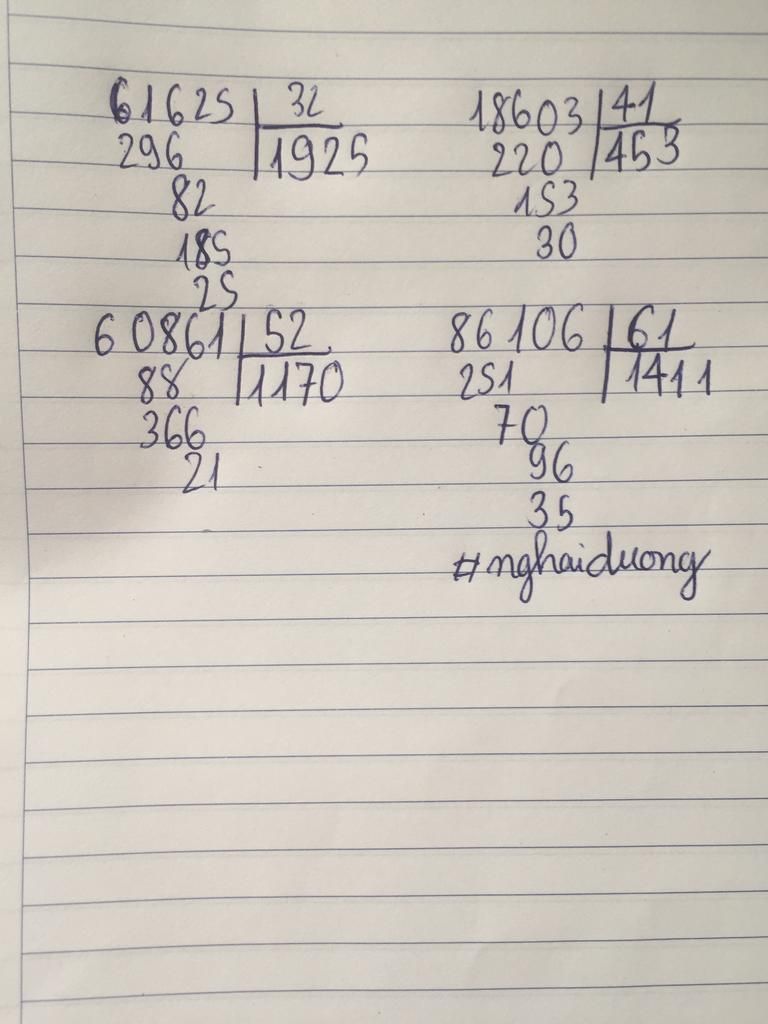 61625 32
296 1925
82
185
25
18603 41
220 453
153
30
60861 52
88 1170
366
21
86106 61
251 1411
70
96
35
#nghaiduong